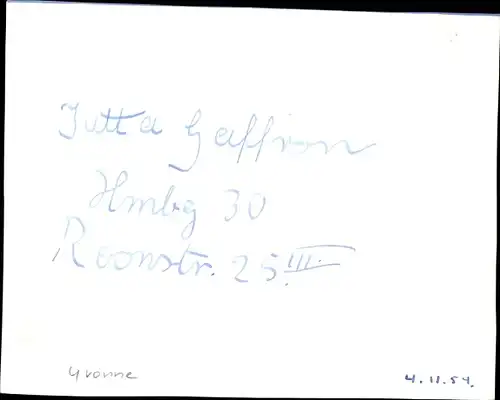 Jutta Gaffron
Hmbg 30
Roonstr. 25 III.
Yvonne
4.11.54.